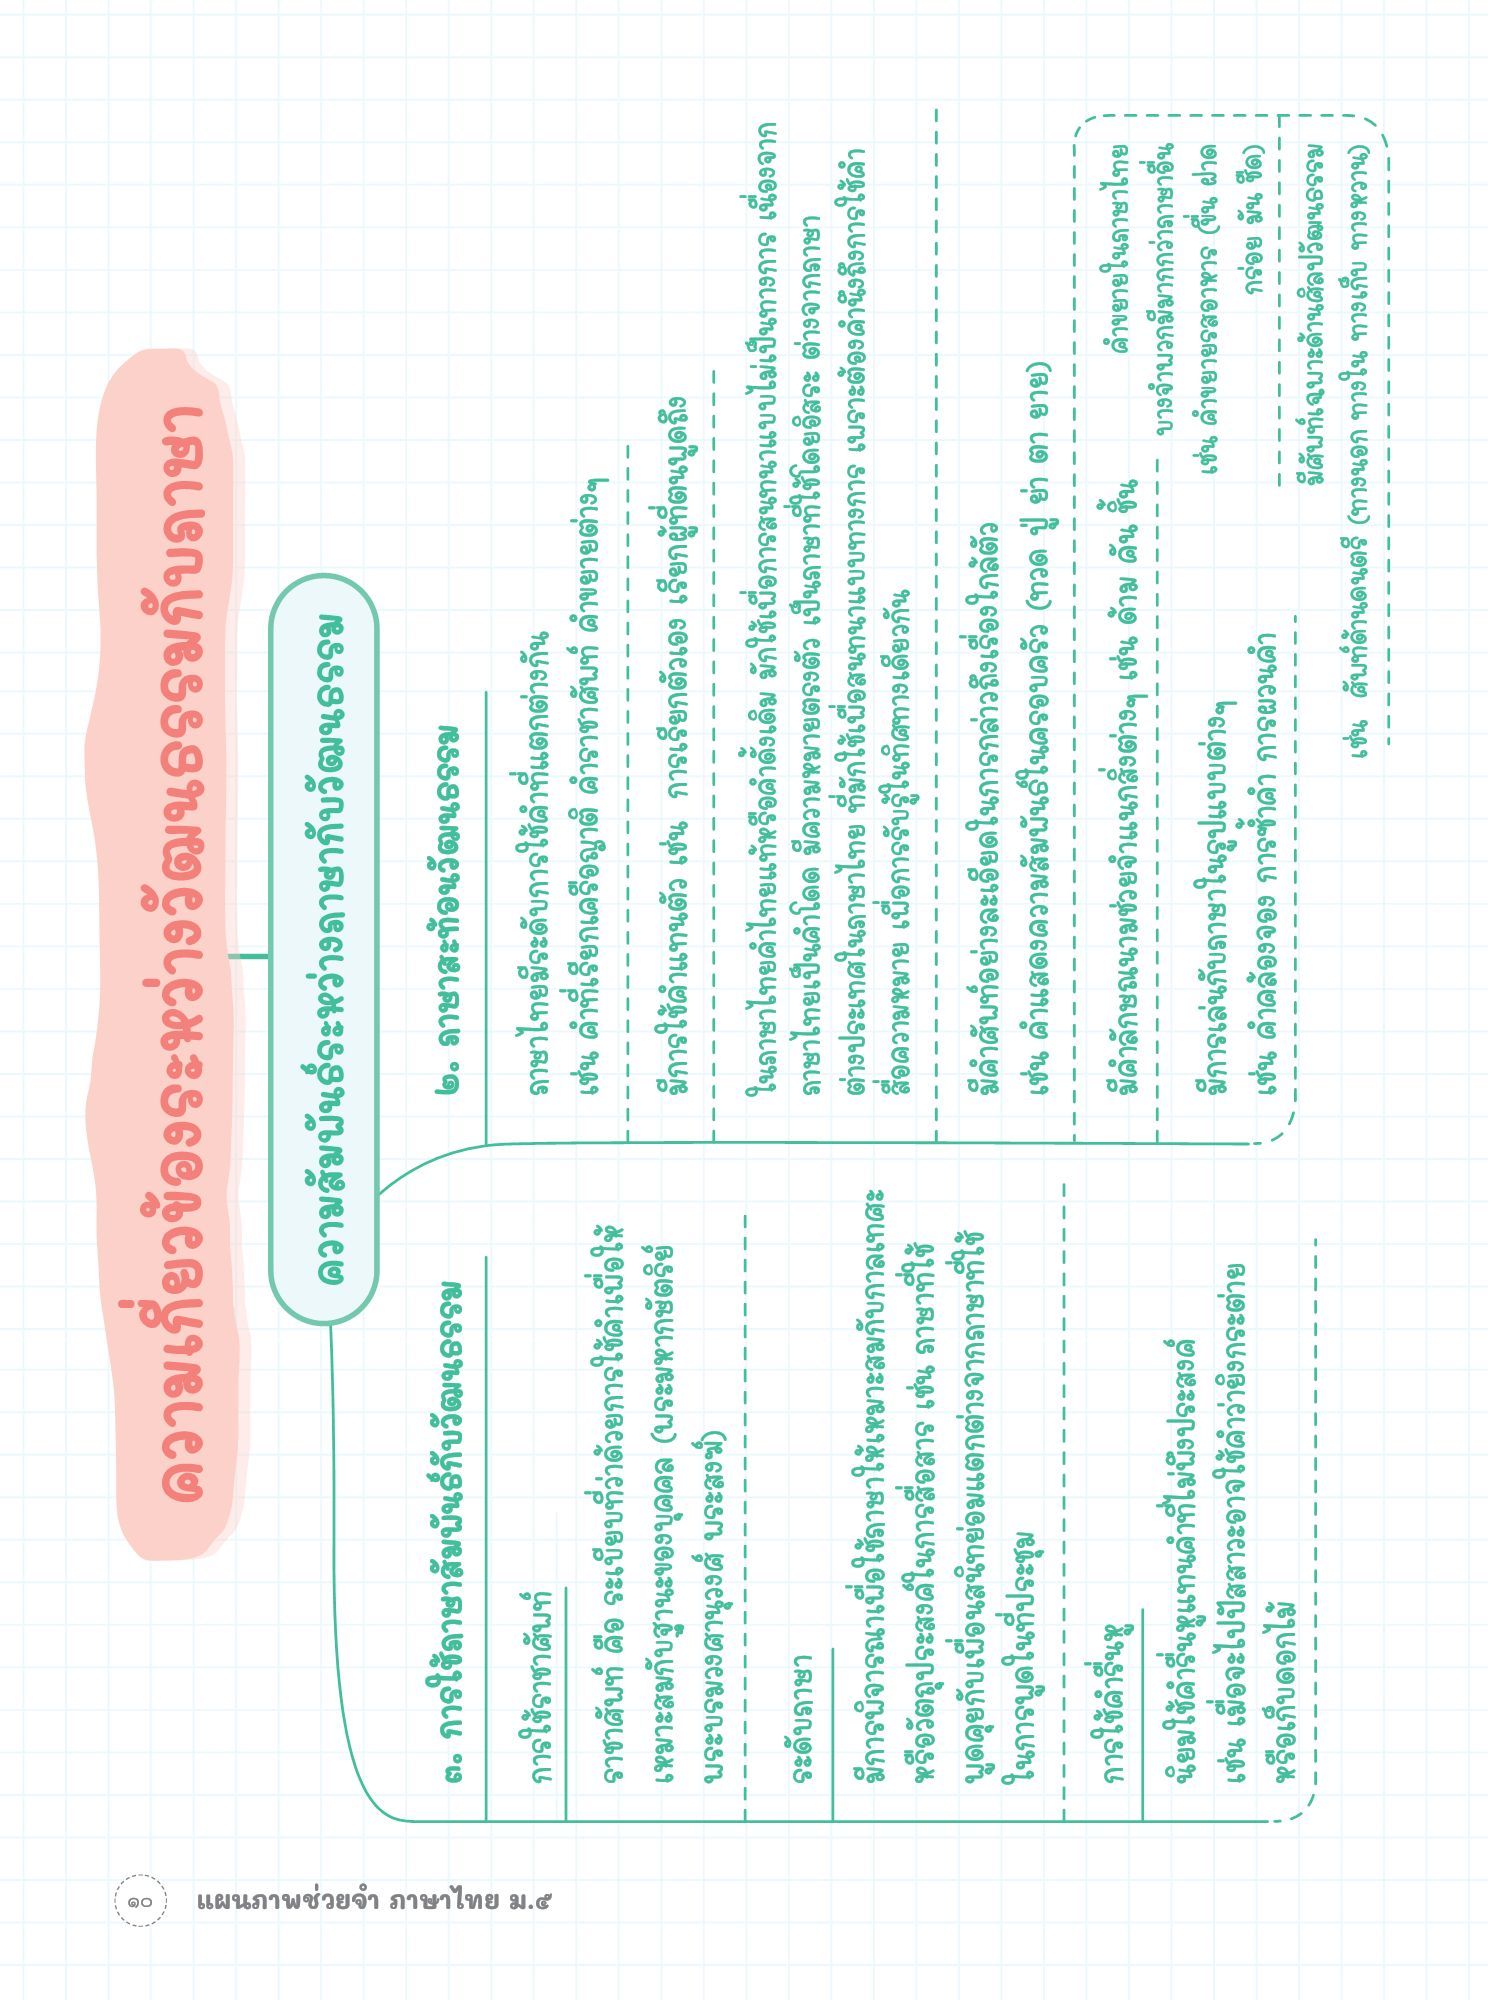 ความเกี่ยวข้องระหว่างวัฒนธรรมกับภาษา
ความสัมพันธ์ระหว่างภาษากับวัฒนธรรม
๒. ภาษาสะท้อนวัฒนธรรม
ภาษาไทยมีระดับการใช้คำที่แตกต่างกัน
เช่น คำที่เรียกเครือญาติ คำราชาศัพท์ คำขยายต่างๆ
มีการใช้คำแทนตัว เช่น การเรียกตัวเอง เรียกผู้ที่ตนพูดถึง
ในภาษาไทยคำไทยแท้หรือคำดั้งเดิม มักใช้เพื่อการสนทนาแบบไม่เป็นทางการ เนื่องจาก
ภาษาไทยเป็นคำโดด มีความหมายตรงตัว เป็นภาษาที่ใช้โดยอิสระ ต่างจากภาษา
ต่างประเทศในภาษาไทย ที่มักใช้เพื่อสนทนาแบบทางการ เพราะต้องคำนึงถึงการใช้คำ
สื่อความหมาย เพื่อการรับรู้ในทิศทางเดียวกัน
มีคำศัพท์อย่างละเอียดในการกล่าวถึงเรื่องใกล้ตัว
เช่น คำแสดงความสัมพันธ์ในครอบครัว (ทวด ปู่ ย่า ตา ยาย)
มีคำลักษณนามช่วยจำแนกสิ่งต่างๆ เช่น ด้าม คัน ชั้น
มีการเล่นกับภาษาในรูปแบบต่างๆ
เช่น คำคล้องจอง การซ้ำคำ การผวนคำ
คำขยายในภาษาไทย
บางจำพวกมีมากกว่าภาษาอื่น
เช่น คำขยายรสอาหาร (ขื่น ฝาด
กร่อย มัน ชืด)
มีศัพท์เฉพาะด้านศิลปวัฒนธรรม
เช่น ศัพท์ด้านดนตรี (ทางนอก ทางใน ทางเก็บ ทางหวาน)
๓. การใช้ภาษาสัมพันธ์กับวัฒนธรรม
การใช้ราชาศัพท์
ราชาศัพท์ คือ ระเบียบที่ว่าด้วยการใช้คำเพื่อให้
เหมาะสมกับฐานะของบุคคล (พระมหากษัตริย์
พระบรมวงศานุวงศ์ พระสงฆ์)
ระดับภาษา
มีการพิจารณาเพื่อใช้ภาษาให้เหมาะสมกับกาลเทศะ
หรือวัตถุประสงค์ในการสื่อสาร เช่น ภาษาที่ใช้
พูดคุยกับเพื่อนสนิทย่อมแตกต่างจากภาษาที่ใช้
ในการพูดในที่ประชุม
การใช้คำรื่นหู
นิยมใช้คำรื่นหูแทนคำที่ไม่พึงประสงค์
เช่น เมื่อจะไปปัสสาวะอาจใช้คำว่ายิงกระต่าย
หรือเก็บดอกไม้
๑๐ แผนภาพช่วยจำ ภาษาไทย ม.๕